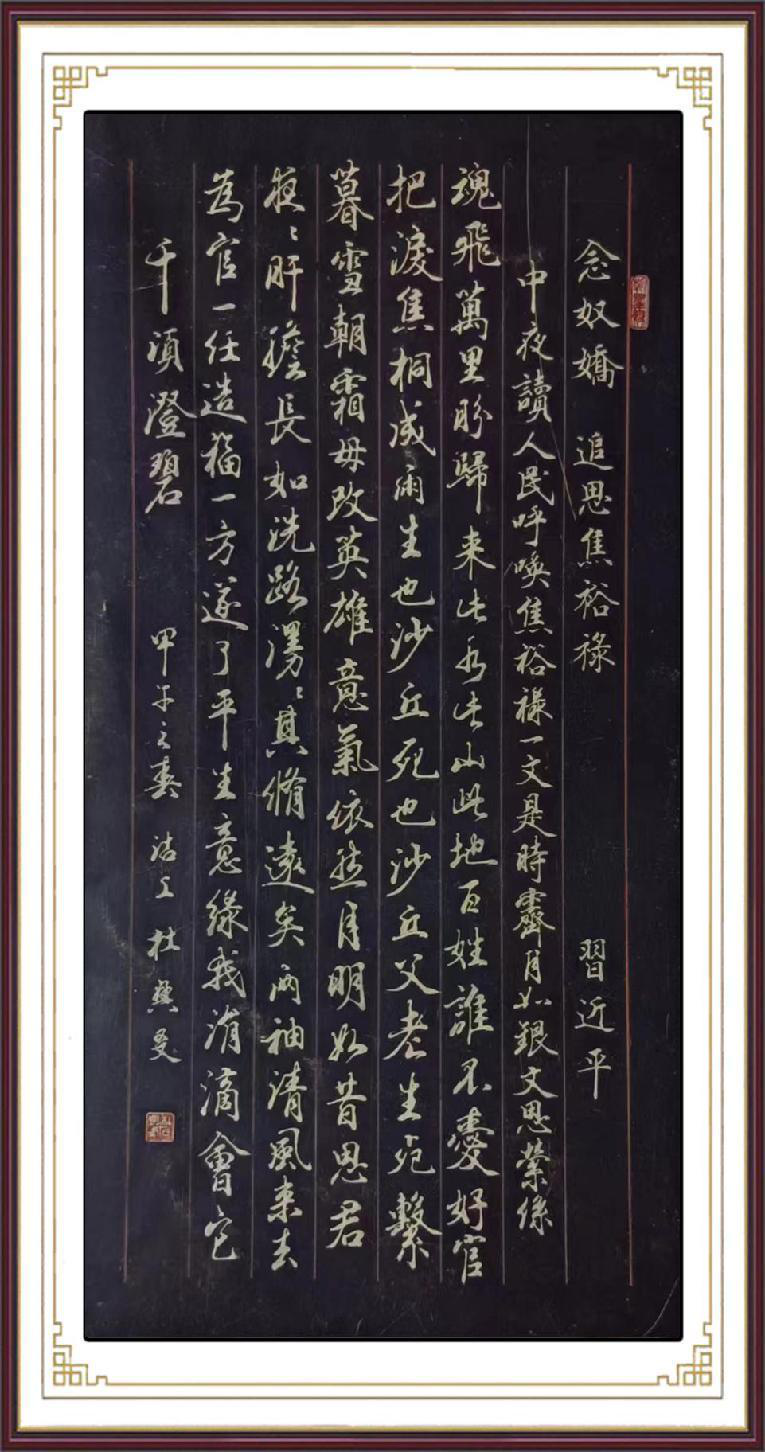 念奴嬌 追思焦裕祿 習近平
中夜讀人民呼喚焦裕祿一文是時霽月如銀文思縈係
魂飛萬里盼歸來此水此山此地百姓誰不愛好官
把淚焦桐成雨生也沙丘死也沙丘父老生死繫
暮雪朝霜毋改英雄意氣依然月明如昔思君
夜〻肝膽長如洗路漫〻其脩遠矣兩袖清風来去
為官一任造福一方遂了平生意綠我涓滴會它
千頃澄碧 甲午之春 沽上杜